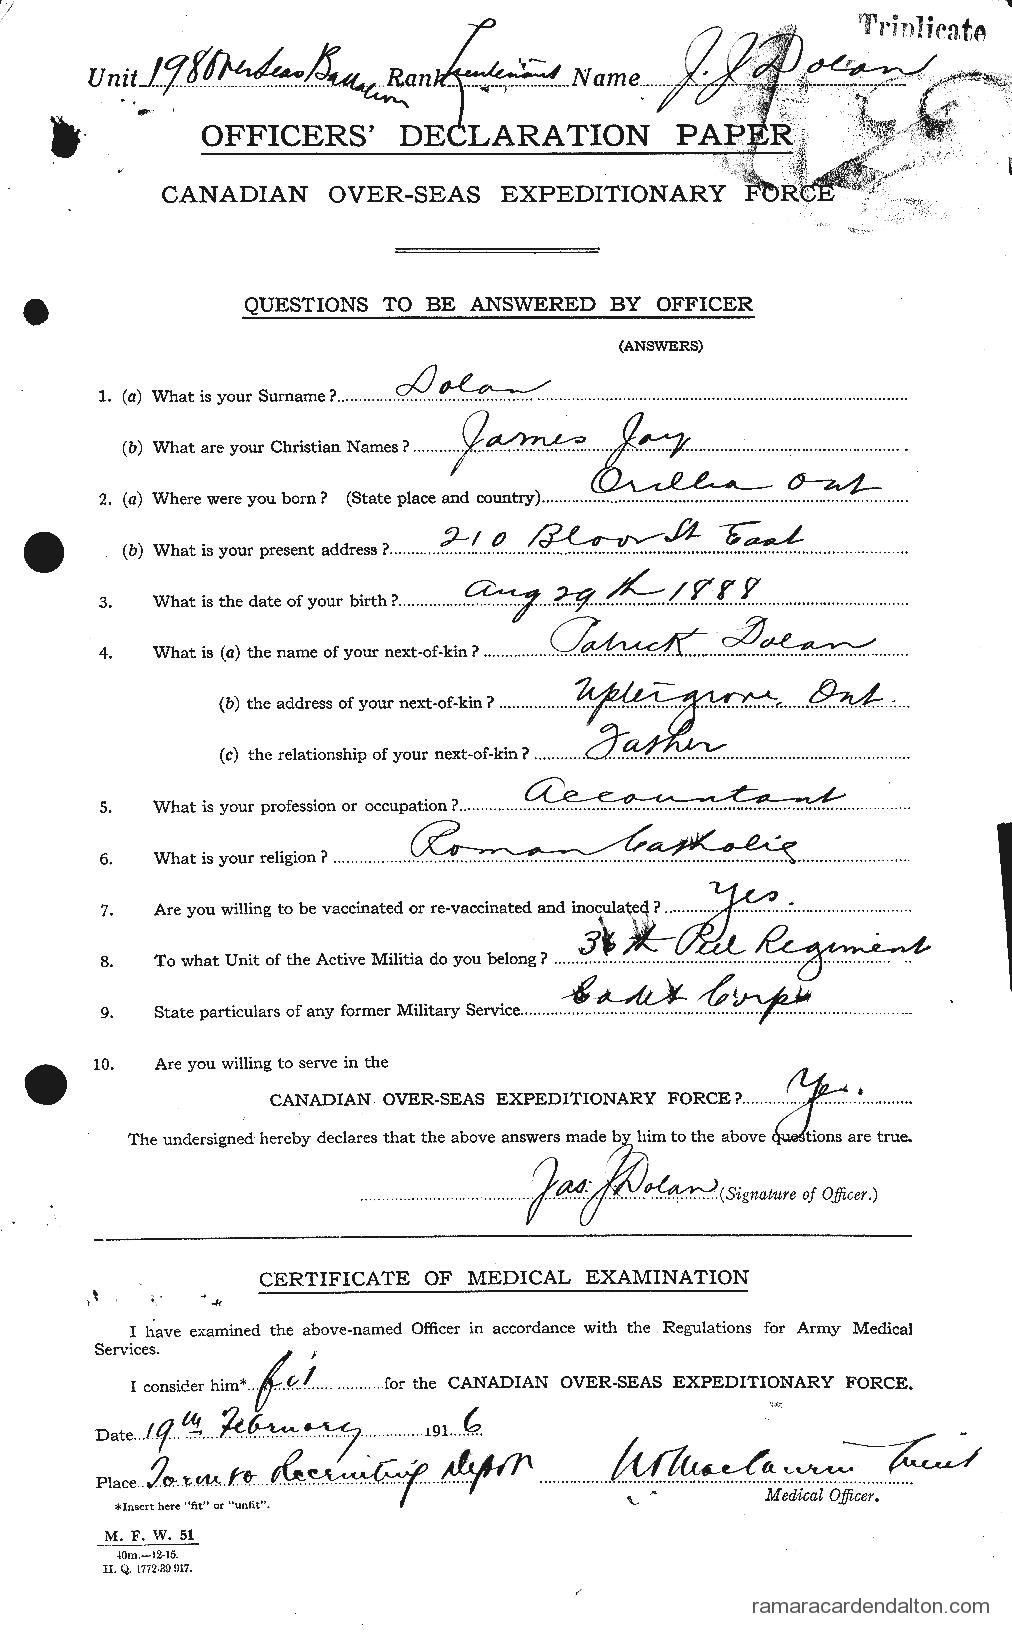 Triplicate
Unit 198 Overseas Battalion Rank Lieutenant Name J. J. Dolan
OFFICERS' DECLARATION PAPER
CANADIAN OVER-SEAS EXPEDITIONARY FORCE
QUESTIONS TO BE ANSWERED BY OFFICER
(ANSWERS)
1. (a) What is your Surname? Dolan
(b) What are your Christian Names? James Jay
2. (a) Where were you born? (State place and country) Orillia Ont
(b) What is your present address? 210 Bloor St East
3. What is the date of your birth? Aug 29th 1888
4. What is (a) the name of your next-of-kin? Patrick Dolan
(b) the address of your next-of-kin? Uptergrove, Ont.
(c) the relationship of your next-of-kin? Father
5. What is your profession or occupation? Accountant
6. What is your religion? Roman Catholic
7. Are you willing to be vaccinated or re-vaccinated and inoculated? Yes.
8. To what Unit of the Active Militia do you belong? 36th Peel Regiment
9. State particulars of any former Military Service Cadet Corps
10. Are you willing to serve in the
CANADIAN OVER-SEAS EXPEDITIONARY FORCE? Yes.
The undersigned hereby declares that the above answers made by him to the above questions are true.
Jas. J Dolan (Signature of Officer.)
CERTIFICATE OF MEDICAL EXAMINATION
I have examined the above-named Officer in accordance with the Regulations for Army Medical
Services.
I consider him* fit for the CANADIAN OVER-SEAS EXPEDITIONARY FORCE.
Date 19th February 1916
Place Toronto Recruiting Depot
Medical Officer.
*Insert here "fit" or "unfit".
M. F. W. 51
40m.—12-15.
H. Q. 1772-39 917.
ramaracardendalton.com